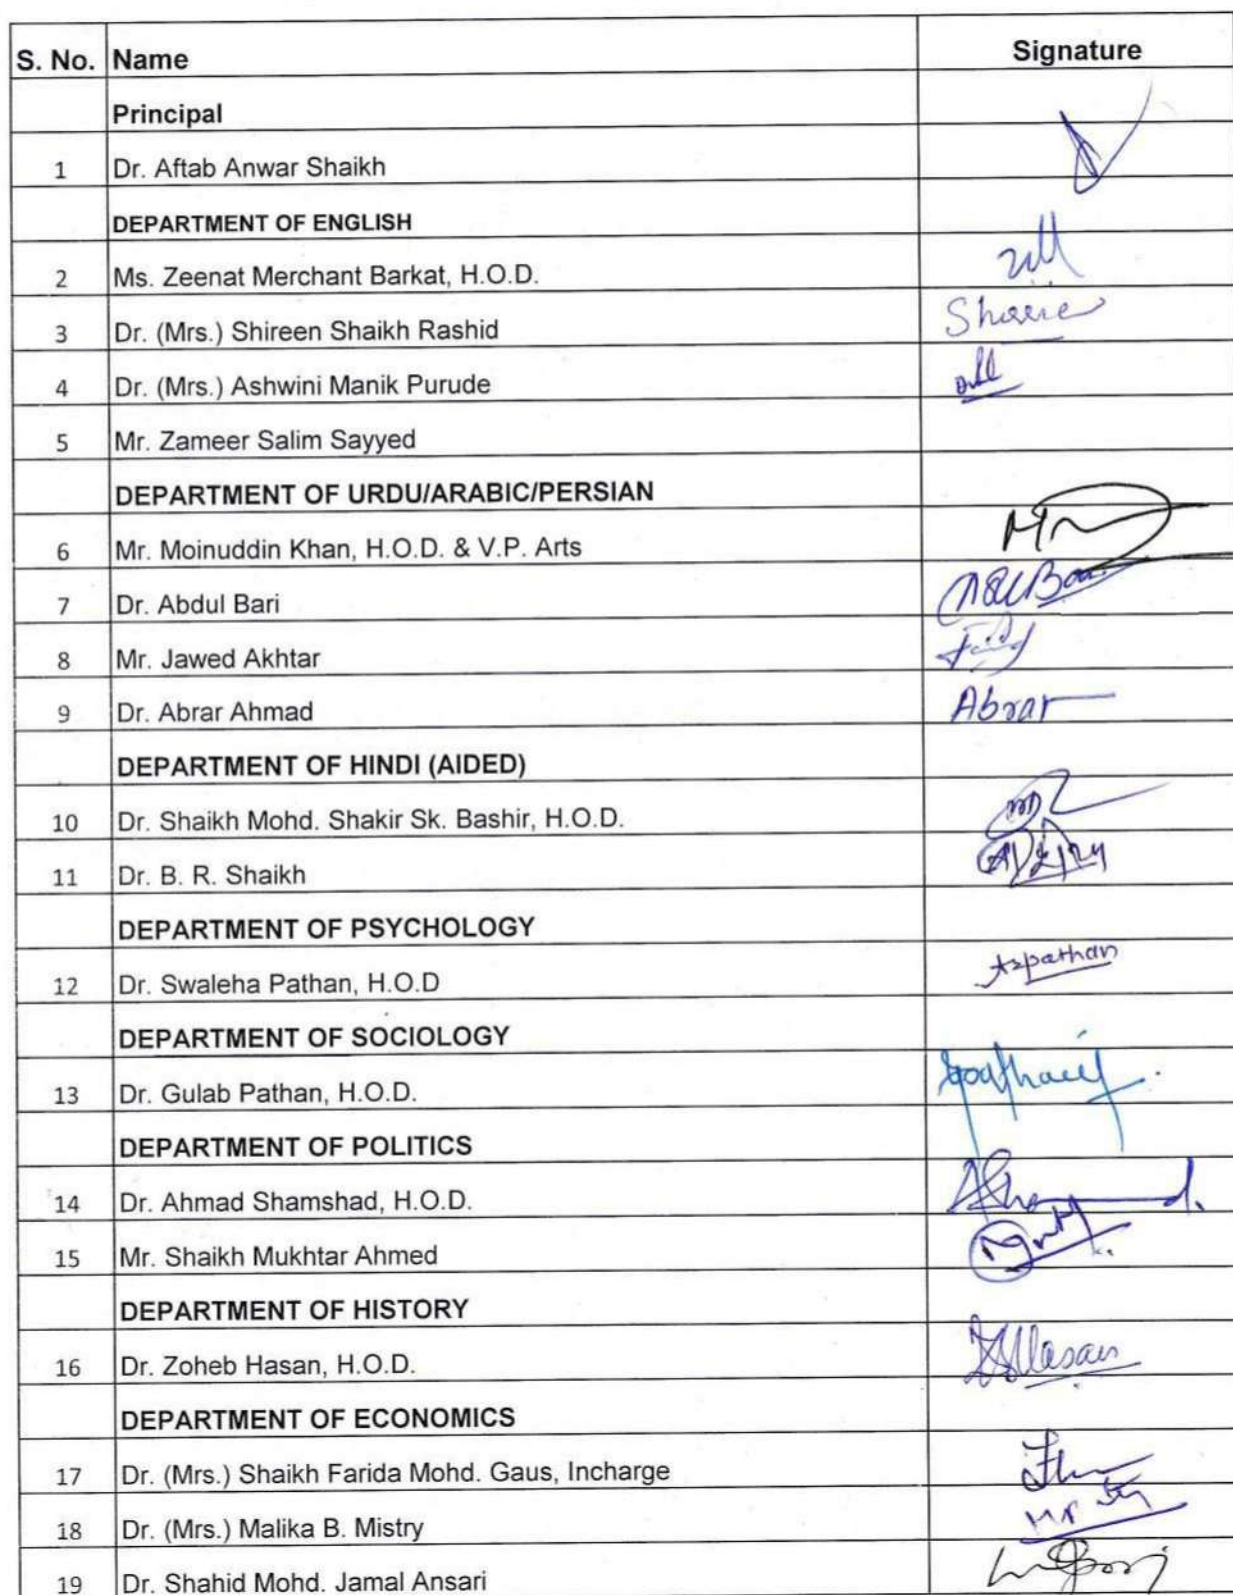 S. No. Name Signature
Principal
1 Dr. Aftab Anwar Shaikh
DEPARTMENT OF ENGLISH
2 Ms. Zeenat Merchant Barkat, H.O.D.
3 Dr. (Mrs.) Shireen Shaikh Rashid
4 Dr. (Mrs.) Ashwini Manik Purude
5 Mr. Zameer Salim Sayyed
DEPARTMENT OF URDU/ARABIC/PERSIAN
6 Mr. Moinuddin Khan, H.O.D. & V.P. Arts
7 Dr. Abdul Bari
8 Mr. Jawed Akhtar
9 Dr. Abrar Ahmad Abrar
DEPARTMENT OF HINDI (AIDED)
10 Dr. Shaikh Mohd. Shakir Sk. Bashir, H.O.D.
11 Dr. B. R. Shaikh
DEPARTMENT OF PSYCHOLOGY
12 Dr. Swaleha Pathan, H.O.D
DEPARTMENT OF SOCIOLOGY
13 Dr. Gulab Pathan, H.O.D.
DEPARTMENT OF POLITICS
14 Dr. Ahmad Shamshad, H.O.D.
15 Mr. Shaikh Mukhtar Ahmed
DEPARTMENT OF HISTORY
16 Dr. Zoheb Hasan, H.O.D.
DEPARTMENT OF ECONOMICS
17 Dr. (Mrs.) Shaikh Farida Mohd. Gaus, Incharge
18 Dr. (Mrs.) Malika B. Mistry
19 Dr. Shahid Mohd. Jamal Ansari